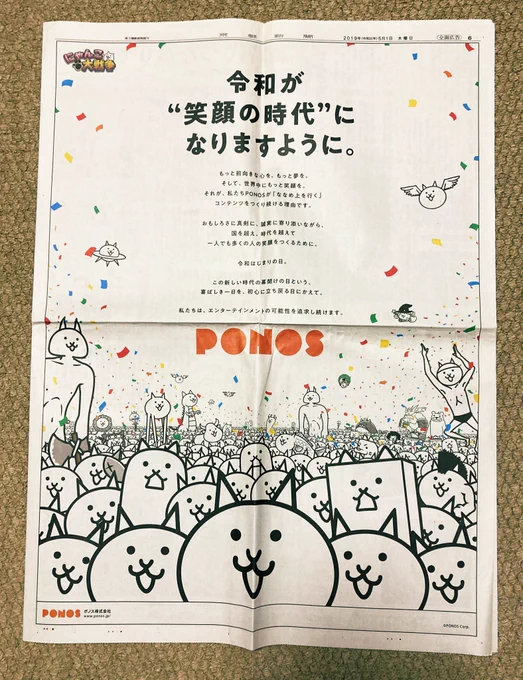 2019年(令和元年)5月1日 水曜日
(全面広告) 6
にゃんこ
大戦争
令和が
“笑顔の時代”に
なりますように。
もっと前向きな心を。もっと夢を。
そして、世界中にもっと笑顔を。
それが、私たちPONOSが「ななめ上を行く」
コンテンツをつくり続ける理由です。
おもしろさに真剣に、誠実に寄り添いながら、
国を越え、時代を越えて
一人でも多くの人の笑顔をつくるために。
令和はじまりの日。
この新しい時代の幕開けの日という、
喜ばしき一日を、初心に立ち戻る日にかえて。
私たちは、エンターテインメントの可能性を追求し続けます。
PONOS
人
PONOS ポノス株式会社
www.ponos.jp/
©PONOS Corp.